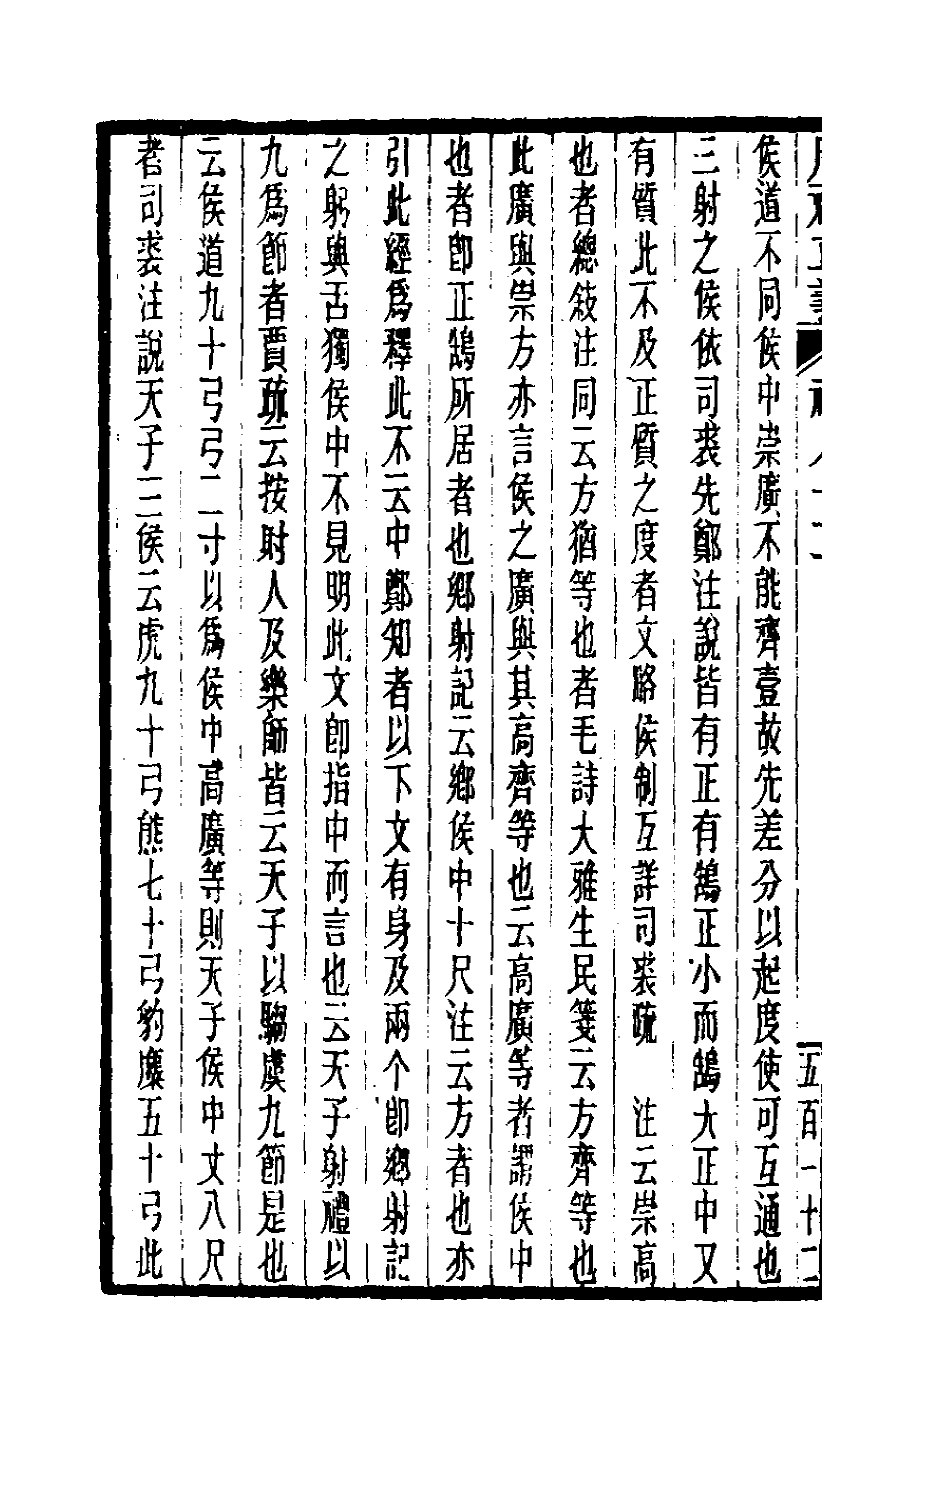 五百一十二
侯道不同侯中崇廣不能齊壹故先差分以起度使可互通也
三射之侯依司裘先鄭注說皆有正有鵠正小而鵠大正中又
有質此不及正質之度者文略侯制互詳司裘疏　注云崇高
也者總敍注同云方猶等也者毛詩大雅生民箋云方齊等也
此廣與崇方亦言侯之廣與其高齊等也云高廣等者謂侯中
也者卽正鵠所居者也鄉射記云鄉侯中十尺注云方者也亦
引此經爲釋此不云中鄭知者以下文有身及兩个卽鄉射記
之躬與舌獨侯中不見明此文卽指中而言也云天子射禮以
九爲節者賈疏云按射人及樂師皆云天子以騶虞九節是也
云侯道九十弓弓二寸以爲侯中高廣等則天子侯中丈八尺
者司裘注說天子三侯云虎九十弓熊七十弓豹麋五十弓此